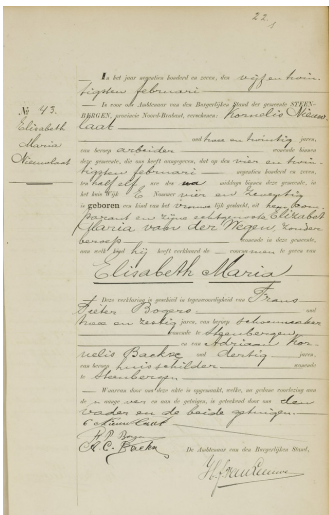 22
No 43.
Elisabeth
Maria
Nieuwlaat
In het jaar negentien honderd en zeven, den vijf en twin-
tigsten februari
is voor mij Ambtenaar van den Burgerlijken Stand der gemeente STEEN-
BERGEN, provincie Noord-Brabant, verschenen: Kornelis Nieuw-
laat
oud twee en twintig jaren,
van beroep arbeider wonende binnen
deze gemeente, die mij heeft aangegeven, dat op den vier en twin-
tigsten februari negentien honderd en zeven,
te half elf ure des na middags binnen deze gemeente, in
het huis wijk E Nummer
is geboren een kind van het vrouwelijk geslacht, uit hem com-
parant en zijne echtgenoote Elizabet
Maria van der Wegen, zonder
beroep wonende in deze gemeente,
aan welk kind hij heeft verklaard de voornamen te geven van
Elisabeth Maria
Deze verklaring is geschied in tegenwoordigheid van Frans
Pieter Bogers oud
twee en zestig jaren, van beroep schoenmaker
wonende te Steenbergen,
en van Adriaan Kor-
nelis Baekse oud dertig jaren,
van beroep huisschilder wonende
te Steenbergen.
Waarvan door mij deze akte is opgemaakt, welke, na gedane voorlezing aan
de aangever en aan de getuigen, is geteekend door mij den
vader en de beide getuigen.
C Nieuwlaat
De Ambtenaar van den Burgerlijken Stand,